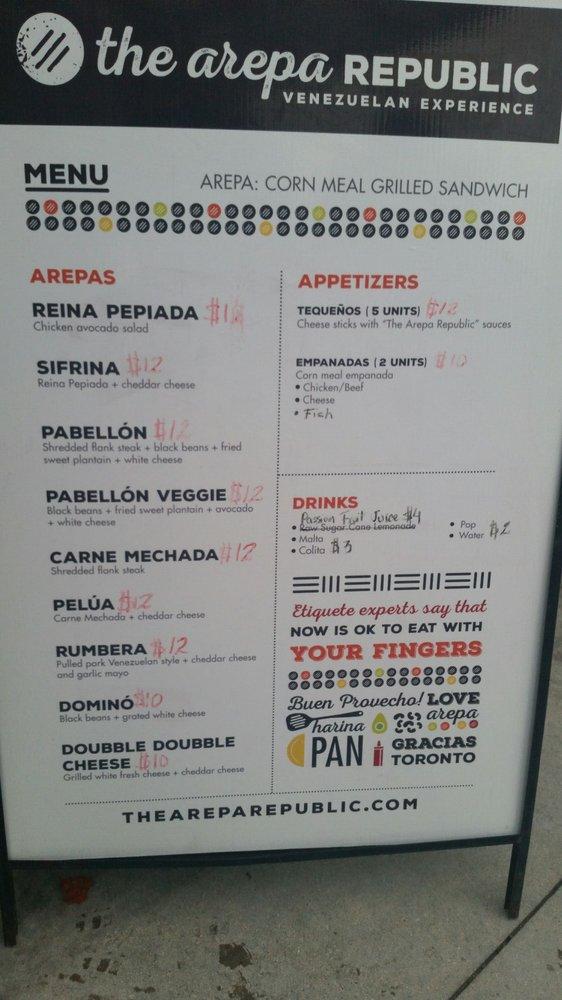 the arepa REPUBLIC
VENEZUELAN EXPERIENCE
MENU
AREPA: CORN MEAL GRILLED SANDWICH
AREPAS
REINA PEPIADA
Chicken avocado salad
SIFRINA $12
Reina Pepiada + cheddar cheese
PABELLÓN $12
Shredded flank steak + black beans + fried
sweet plantain + white cheese
PABELLÓN VEGGIE $12
Black beans + fried sweet plantain + avocado
+ white cheese
CARNE MECHADA $12
Shredded flank steak
PELÚA $12
Carne Mechada + cheddar cheese
RUMBERA $12
Pulled pork Venezuelan style + cheddar cheese
and garlic mayo
DOMINÓ $10
Black beans + grated white cheese
DOUBBLE DOUBBLE
CHEESE $10
Grilled white fresh cheese + cheddar cheese
APPETIZERS
TEQUEÑOS ( 5 UNITS) $12
Cheese sticks with "The Arepa Republic" sauces
EMPANADAS ( 2 UNITS) $10
Corn meal empanada
• Chicken/Beef
• Cheese
• Fish
DRINKS
Passion Fruit Juice $4
• Raw Sugar Cane Lemonade
• Malta
• Colita $3
• Pop
• Water $2
Etiquete experts say that
NOW IS OK TO EAT WITH
YOUR FINGERS
Buen Provecho! LOVE
harina arepa
PAN GRACIAS
TORONTO
THEAREPAREPUBLIC.COM